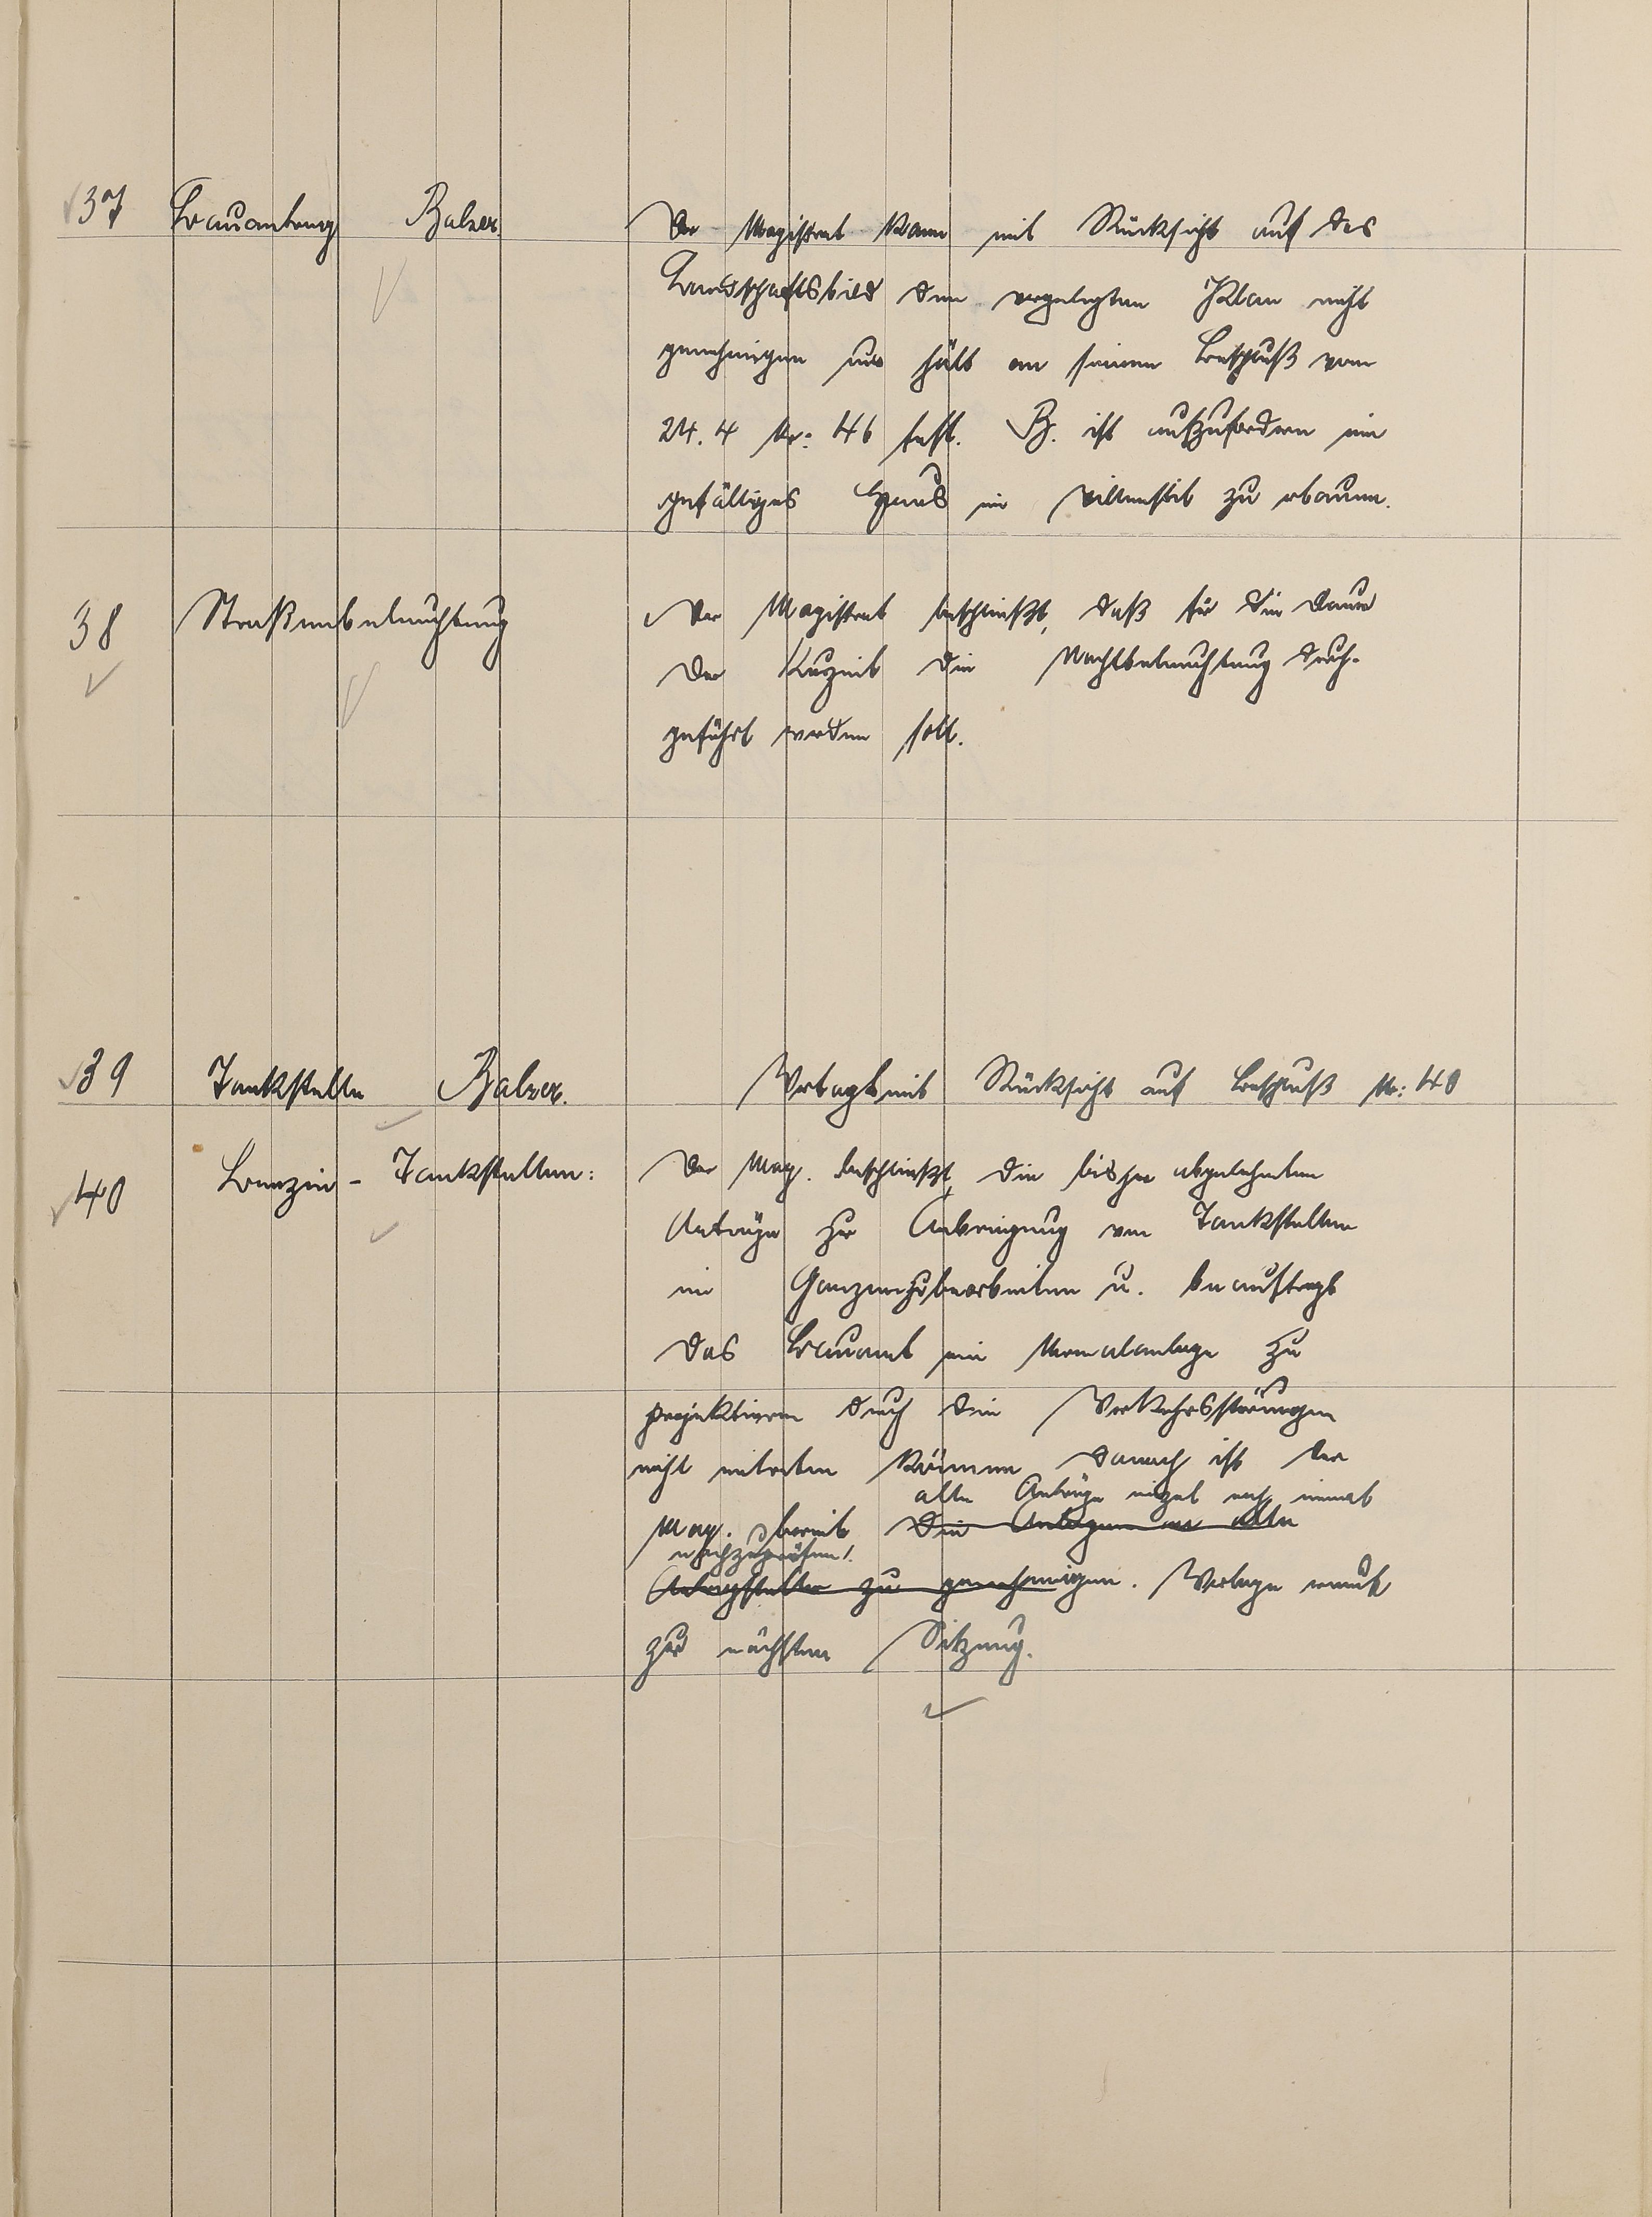 37 Bauantrag Balzer.
Der Magistrat kann mit Rücksicht auf das
Landschaftsbild den vorgelegten Plan nicht
genehmigen und hält an seinem Beschluß vom
24. 4 Nr: 46 fest. B. ist aufzufordern ein
gefälliges Haus im Villenstil zu erbauen.
38 Straßenbeleuchtung
Der Magistrat beschließt, daß für die Dauer
der Kurzeit die Nachtbeleuchtung durch-
geführt werden soll.
39 Tankstelle Balzer.
Vertagt mit Rücksicht auf Beschluß Nr: 40
40 Benzin-Tankstellen:
Der Mag. beschließt, die bisher abgelehnten
Anträge zur Anbringung von Tankstellen
im Ganzen zu bearbeiten u. beauftragt
das Bauamt eine Normalanlage zu
projektieren durch die Verkehrsstörungen
nicht eintreten können danach ist der
alle Anträge einzel noch einmal
Mag. bereit die Anlagen an alle
nachzuprüfen!
Antragsteller zu genehmigen. Vorlage erneut
zur nächsten Sitzung.